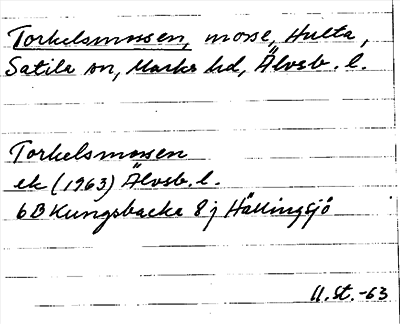 Torkelsmossen, mosse, Hulta,
Sätila sn, Marks hd, Älvsb. l.
Torkelsmossen
ek (1963) Älvsb. l.
6B Kungsbacka 8j Hällingsjö
U.St. -63